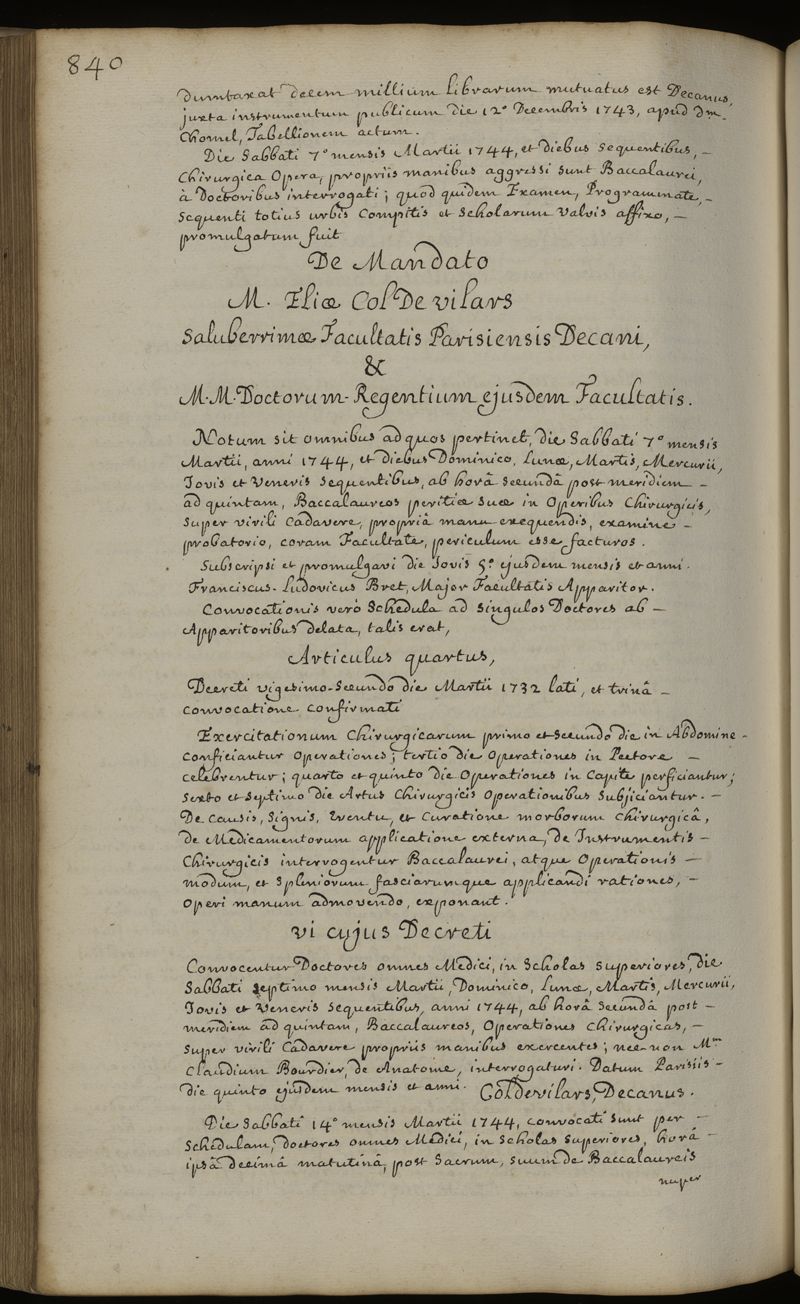 840
Dumtaxat decem millium librarum mutuatus est Decanus,
juxta instrumentum publicum die 12ᵃ Decembris 1743, apud Dm.
Chomel, Tabellionem actum.
Die Sabbati 7ᵃ mensis Martii 1744, et diebus sequentibus, –
Chirurgica Opera, propriis manibus aggressi sunt Baccalaurei,
à Doctoribus interrogati; quod quidem Examen, Programmate, –
sequenti totius urbis Compitis et Scholarum Valvis affixo, –
promulgatum fuit
De Mandato
M. Eliæ Col De vilars
Saluberrimæ Facultatis Parisiensis Decani,
&
M.M. Doctorum Regentium ejusdem Facultatis.
Notum sit omnibus ad quos pertinet, die Sabbati 7ᵃ mensis
Martii, anni 1744, et diebus Dominico, Lunæ, Martis, Mercurii,
Jovis et Veneris sequentibus, ab horâ secundâ post meridiem –
ad quintam, Baccalaureos peritiæ suæ in Operibus Chirurgicis,
super virili Cadavere, propriâ manu exequendis, examine –
probatorio, coram Facultate, periculum esse facturos.
Subscripsi et promulgavi die Jovis 5ᵃ ejusdem mensis et anni.
Franciscus-Ludovicus Bret, Major Facultatis Apparitor.
Convocationis verò Schedula ad singulos Doctores ab –
Apparitoribus delata, talis erat,
Articulus quartus,
Decreti vigesimo-secundo die Martii 1732 lati, et trinâ –
convocatione confirmati
Exercitationum Chirurgicarum primo et secundo die in Abdomine –
conficiantur operationes; tertio die operationes in Pectore –
celebrentur; quarto et quinto die Operationes in Capite perficiantur;
sexto et septimo die Artus Chirurgicis Operationibus subjiciantur. –
De causis, signis, eventu, et curatione morborum chirurgicâ,
de Medicamentorum applicatione externa, de Instrumentis –
Chirurgicis interrogentur Baccalaurei, atque Operationis –
modum, et spleniorum fasciarumque applicandi rationes, –
operi manum admovendo, exponant.
vi cujus Decreti
Convocentur Doctores omnes Medici, in Scholas superiores, die
Sabbati septimo mensis Martii, Dominico, Lunæ, Martis, Mercurii,
Jovis et Veneris sequentibus, anni 1744, ab horâ secundâ post –
meridiem ad quintam, Baccalaureos, Operationes Chirurgicas, –
super virili Cadavere propriis manibus exercentes; nec-non Mum
Claudium Bourdier, de Anatome, interrogaturi. Datum Parisiis –
die quinto ejusdem mensis et anni. ColDevilars, Decanus.
Die Sabbati 14ᵃ mensis Martii 1744, convocati sunt per –
Schedulam, Doctores omnes Medici, in Scholas superiores, horâ –
ipsâ decimâ matutinâ, post Sacrum, suum de Baccalaureis
nuper